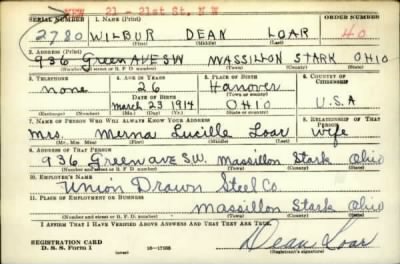 NEW 21 - 21st St. N W
SERIAL NUMBER 1. NAME (Print) ORDER NUMBER
2780 WILBUR DEAN LOAR 40
(First) (Middle) (Last)
2. ADDRESS (Print)
936 Green AVE SW MASSILLON STARK OHIO
(Number and street or R. F. D. number) (Town) (County) (State)
3. TELEPHONE 4. AGE IN YEARS 5. PLACE OF BIRTH 6. COUNTRY OF CITIZENSHIP
none 26 Hanover
DATE OF BIRTH (Town or county)
March 23 1914 OHIO U.S.A
(Exchange) (Number) (Mo.) (Day) (Yr.) (State or country)
7. NAME OF PERSON WHO WILL ALWAYS KNOW YOUR ADDRESS 8. RELATIONSHIP OF THAT PERSON
Mrs. Merna Lucille Loar wife
(Mr., Mrs., Miss) (First) (Middle) (Last)
9. ADDRESS OF THAT PERSON
936 Green ave S.W. Massillon Stark Ohio
(Number and street or R. F. D. number) (Town) (County) (State)
10. EMPLOYER'S NAME
Union Drawn Steel Co.
11. PLACE OF EMPLOYMENT OR BUSINESS
Massillon Stark Ohio
(Number and street or R. F. D. number) (Town) (County) (State)
I AFFIRM THAT I HAVE VERIFIED ABOVE ANSWERS AND THAT THEY ARE TRUE.
REGISTRATION CARD
D. S. S. Form 1 16-17105 Dean Loar
(Registrant's signature)